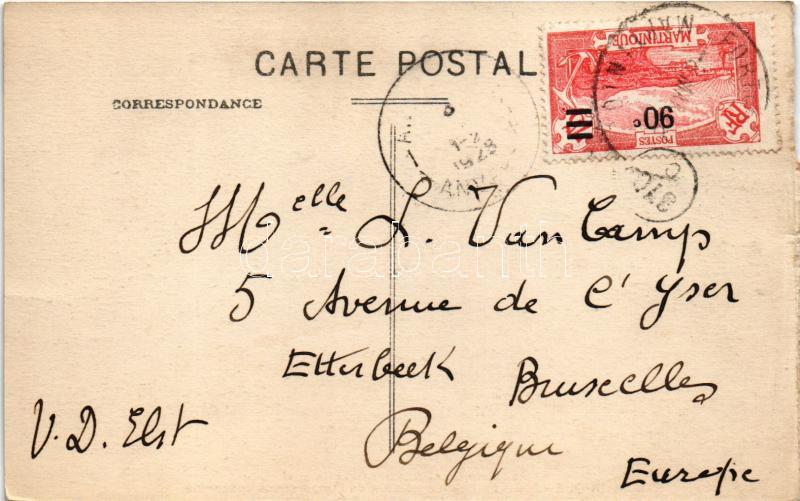 CARTE POSTALE
CORRESPONDANCE
MARTINIQUE
90c
POSTES
RF
1928
Melle L. Van Camp
5 Avenue de l'Yser
Etterbeek Bruxelles
Belgique
Europe
V.D. Elst
darabanth